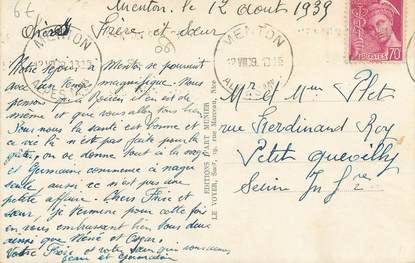 67
Menton. le 12 aout 1939
Chère Frère et Sœur
Notre séjour à Menton se poursuit
avec un temps magnifique. Nous
pensons qu'à Rouen il en est de
même et que vous allez tous bien
Pour nous la santé est bonne et
on se donne tout à la
et Germaine commence à nager
seule, aussi ce n'est pas une
petite affaire. Chers Frère et
sœur, je termine pour cette fois
en vous embrassant bien tous deux
ainsi que René et
Votre Frère et votre sœur qui
Jean et Germaine
EDITIONS D'ART MUNIER
LE VOYER, Succr, 19, rue Marceau, Nice
MENTON
12 VIII 39
MENTON
12 VIII 39
POSTES
70
Mr et Mme Plet
rue Ferdinand Roy
Petit Quevilly
Seine Infre